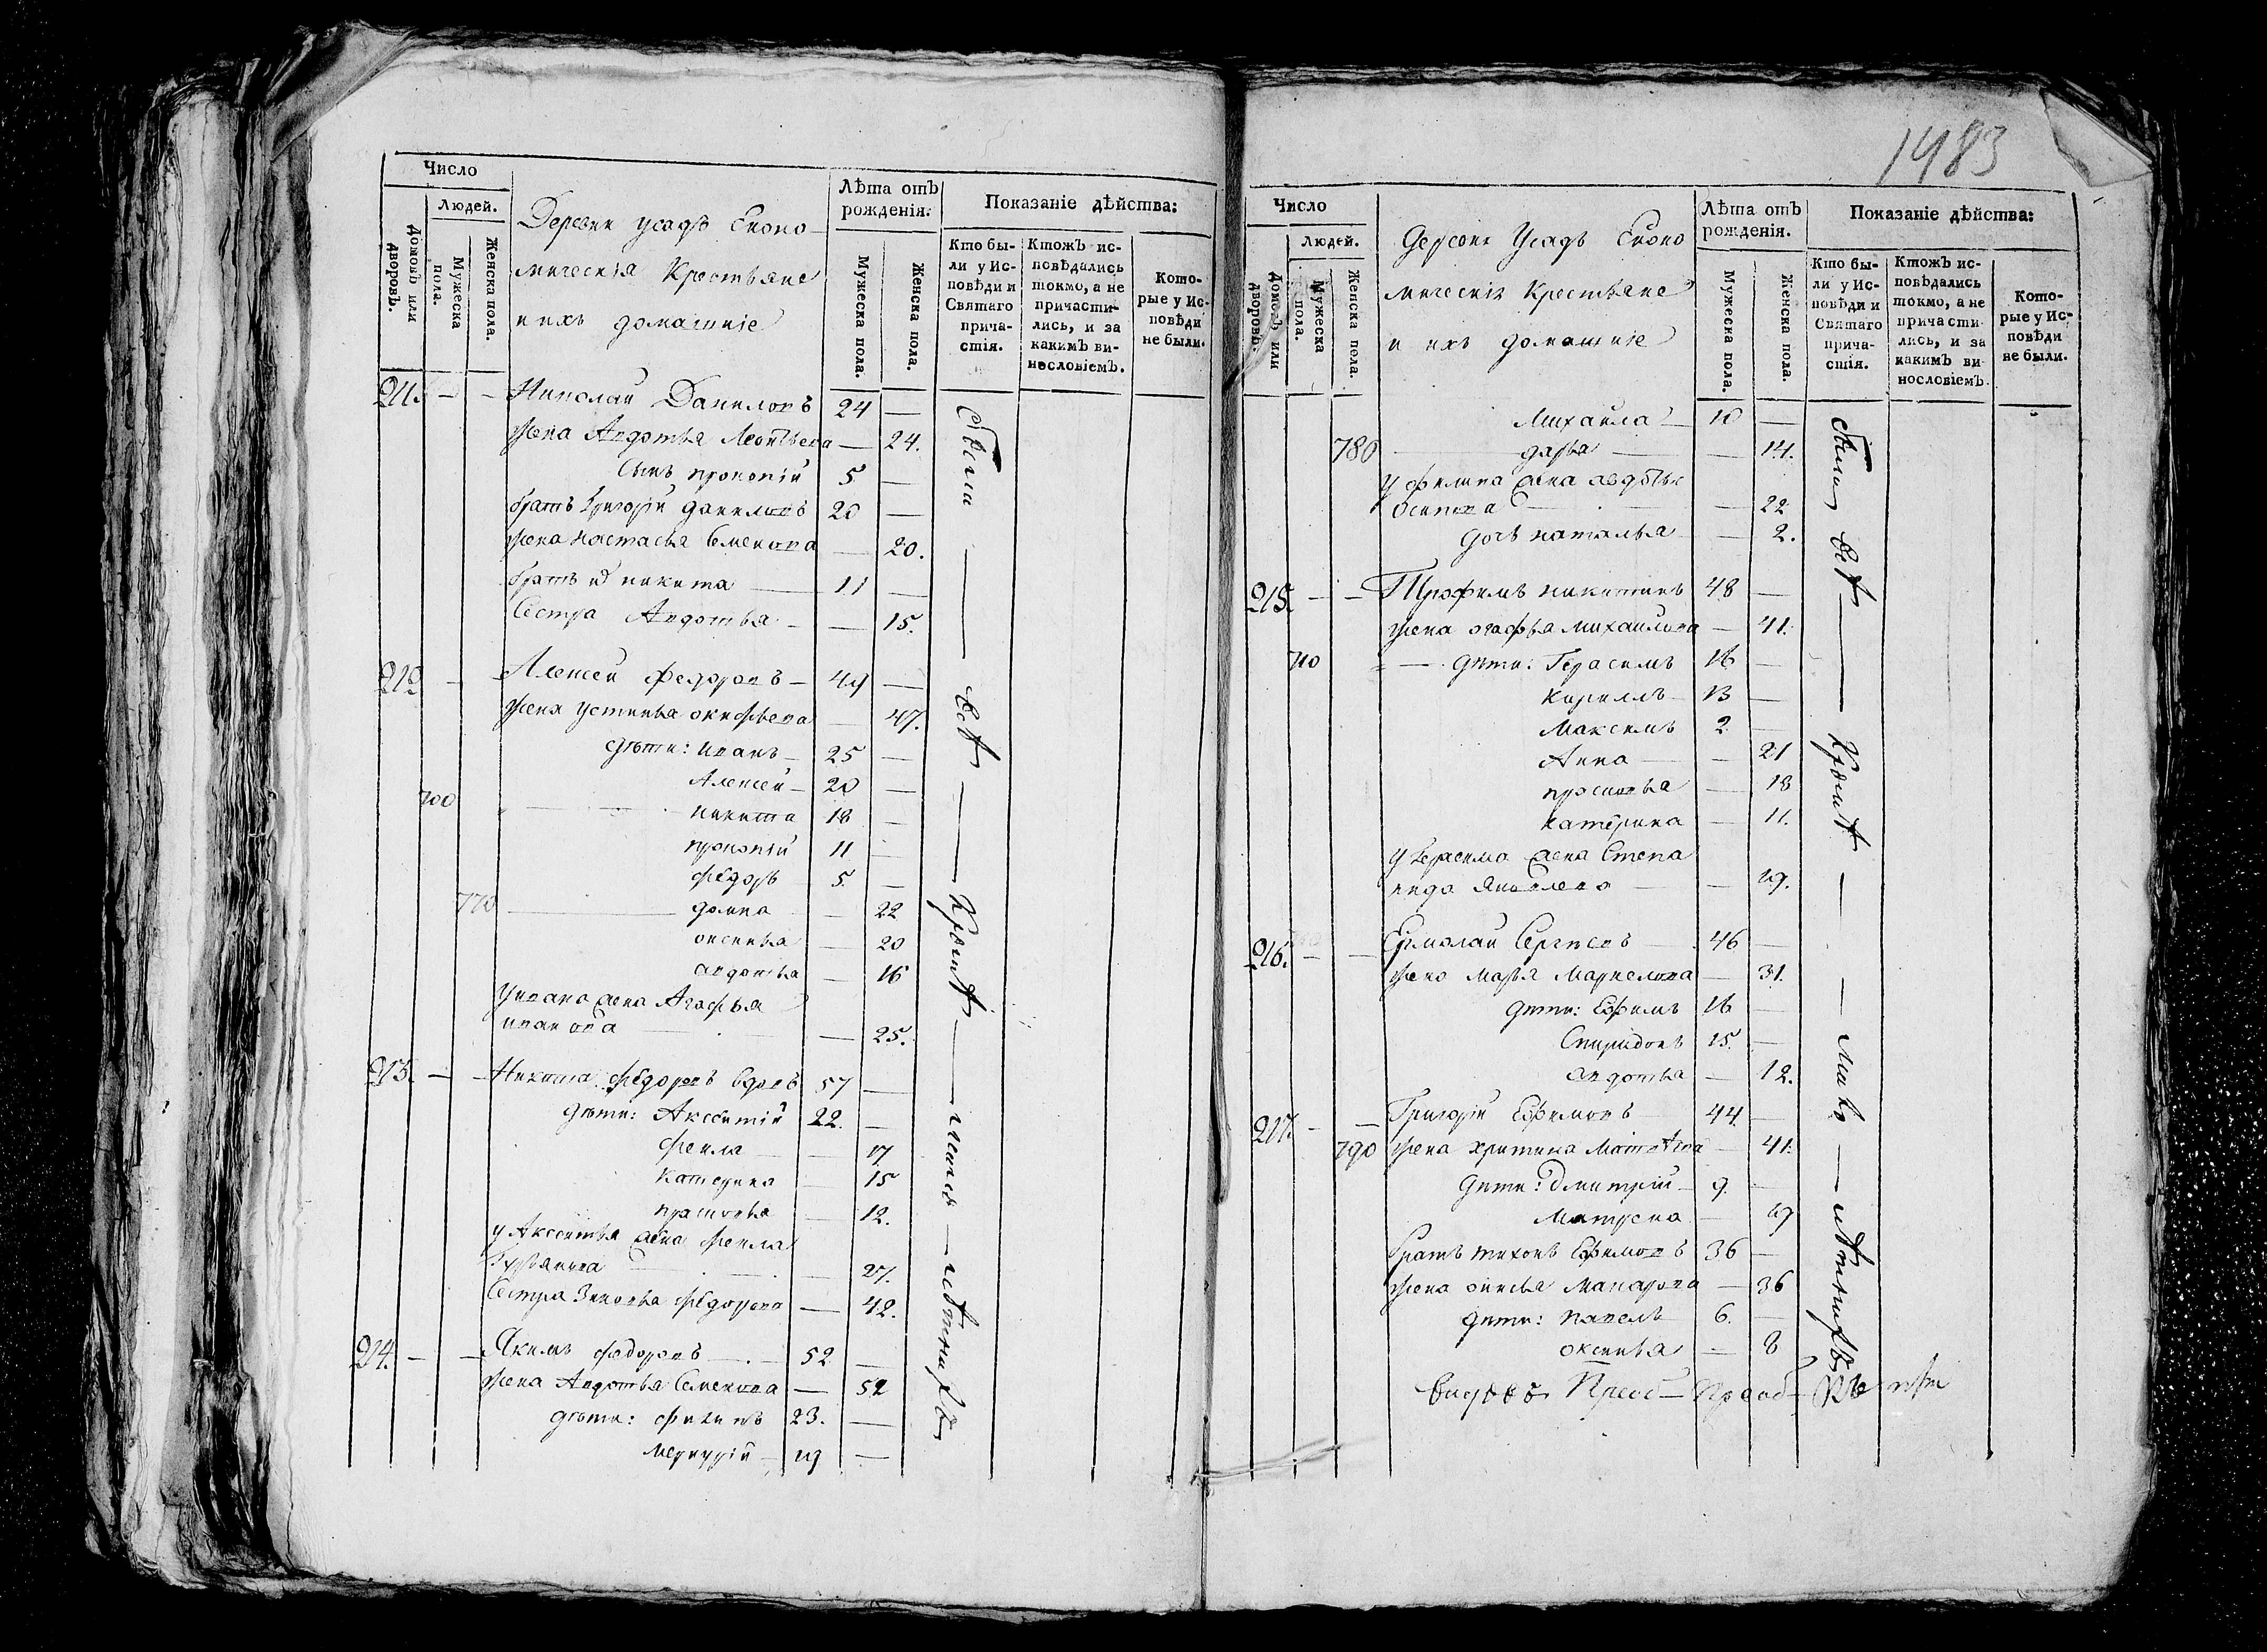 Число
Людей.
Домовъ или дворовъ.
Мужеска пола.
Женска пола.
Деревни усадъ Еконо
мическія Крестьяне
и ихъ домашніе
Лѣта отъ рожденія:
Мужеска пола.
Женска пола.
Показаніе дѣйства:
Кто бы-
ли у Ис-
повѣди и
Святаго
прича-
стія.
Ктожъ ис-
повѣдались
токмо, а не
причасти-
лись, и за
какимъ ви-
нословіемъ.
Кото-
рые у Ис-
повѣди
не были.
211. — — Николай Даниловъ 24 —
жена Авдотья Леонтьева — 24.
Сынъ прокопій 5 —
братъ Григорій Даниловъ 20 —
жена настасья Семенова — 20.
братъ никита 11 —
Сестра Авдотья — 15.
212 — Алексей федоровъ 49 —
жена устинья окифьева — 47.
дѣти: иванъ 25 —
Алексей 20 —
700 никита 18 —
прокопій 11 —
федоръ 5. —
770 домна — 22
оксинья — 20
авдотья — 16
у ивана жена Агафья
иванова — 25.
213. — — Никита федоровъ вдовъ 57 —
дѣти: Аксентій 22. —
фекла — 17
Катерина — 15
прасковья — 12.
у Аксентья жена фекла
— 27.
Сестра Зиновья федорова — 42.
214. — — Якимъ федоровъ 52 —
жена Авдотья Семенова — 52
дѣти: филипъ 23. —
меркурій 19 —
были всѣ Кромѣ
1483
Число
Людей.
Домовъ или дворовъ.
Мужеска пола.
Женска пола.
Деревни Усадъ Еконо
мическія Крестьяне
и ихъ домашніе
Лѣта отъ рожденія.
Мужеска пола.
Женска пола.
Показаніе дѣйства:
Кто бы-
ли у Ис-
повѣди и
Святаго
прича-
стія.
Ктожъ ис-
повѣдались
токмо, а не
причасти
лись, и за
какимъ ви
нословіемъ
Кото-
рые у Ис-
повѣди
не были.
Михаила 10 —
780 дарья — 14.
у филипа жена авдотья
Осипова — 22
дочь наталья — 2.
215. — — Трофимъ никитинъ 48 —
жена огафья михаилова — 41.
710 дѣти: Герасимъ 16 —
кирилъ 13 —
Максимъ 2 —
Анна — 21
просковья — 18
катерина — 11.
у Герасима жена Степа
нида Яковлева — 19.
216. — — Ермолай Сергѣевъ 46 —
жена марья Маркелова — 31.
дѣти: Ефимъ 16 —
Спиридонъ 15. —
авдотья — 12.
217. — — Григорій Ефимовъ 44 —
790 жена христина Матвѣева — 41.
дѣти: Дмитрій 9. —
Матрена — 19
братъ тихонъ Ефимовъ 36 —
жена онисья макарова — 36
дѣти: павелъ 6. —
оксинья — 8
были всѣ Кромѣ